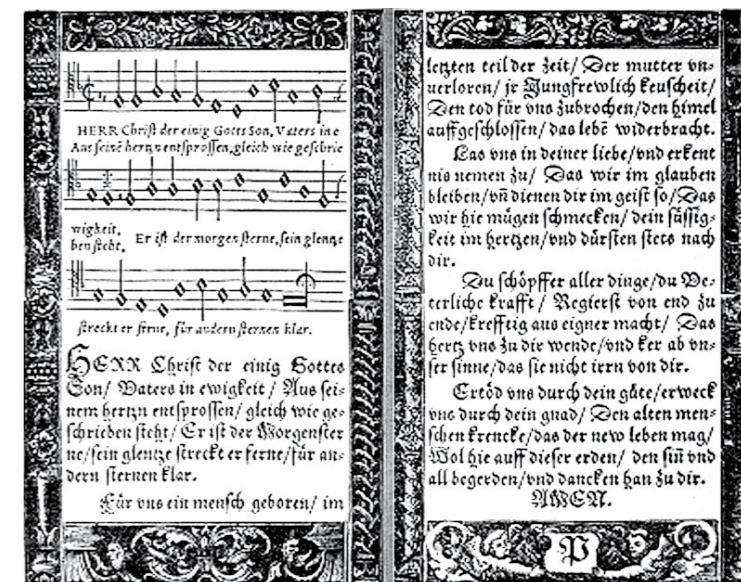 HERR Christ der einig Gotts Son, Vaters in e
Aus seinē hertzn entsprossen, gleich wie geschrie
wigkeit,
ben steht, Er ist der morgen sterne, sein glentze
streckt er ferne, für andern sternen klar.
HERR Christ der einig Gottes
Son/ Vaters in ewigkeit/ Aus sei⸗
nem hertzn entsprossen/ gleich wie ge⸗
schrieben steht/ Er ist der Morgenster
ne/sein glentze streckt er ferne/für an⸗
dern sternen klar.
Für vns ein mensch geboren/ im
letzten teil der zeit/ Der mutter vn⸗
uerloren/ jr Jungfrewlich keuscheit/
Den tod für vns zubrochen/den himel
auffgeschlossen/ das lebē widerbracht.
Las vns in deiner liebe/vnd erkent
nis nemen zu/ Das wir im glauben
bleiben/vñ dienen dir im geist so/Das
wir hie mügen schmecken/ dein süssig⸗
keit im hertzen/vnd dürsten stets nach
dir.
Du schöpffer aller dinge/du Ve⸗
terliche krafft/ Regierst von end zu
ende/krefftig aus eigner macht/ Das
hertz vns zu dir wende/vnd ker ab vn⸗
ser sinne/das sie nicht irrn von dir.
Ertöd vns durch dein güte/erweck
vns durch dein gnad/ Den alten men⸗
schen krencke/das der new leben mag/
Wol hie auff dieser erden/ den siñ vnd
all begerden/vnd dancken han zu dir.
AMEN.
P